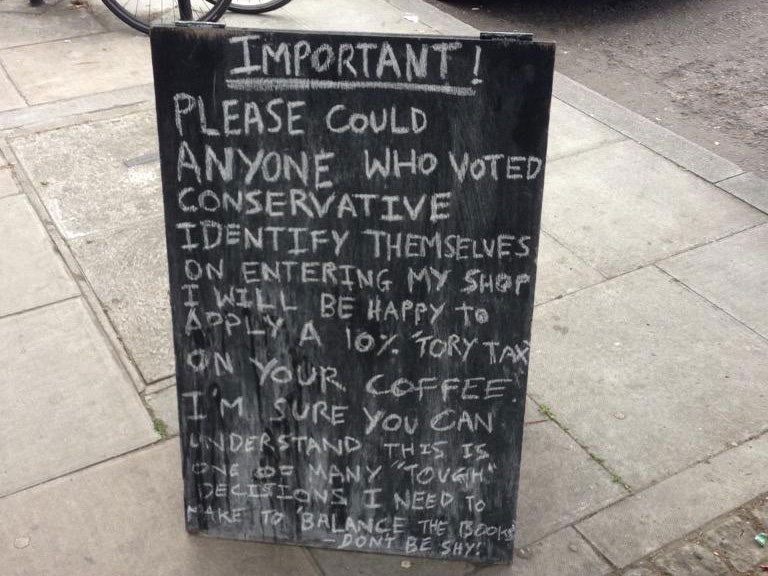 IMPORTANT!
PLEASE COULD
ANYONE WHO VOTED
CONSERVATIVE
IDENTIFY THEMSELVES
ON ENTERING MY SHOP
I WILL BE HAPPY TO
APPLY A 10% "TORY TAX"
ON YOUR COFFEE.
I'M SURE YOU CAN
UNDERSTAND THIS IS
ONE OF MANY "TOUGH"
DECISIONS I NEED TO
MAKE TO 'BALANCE THE BOOKS'
- DONT BE SHY!